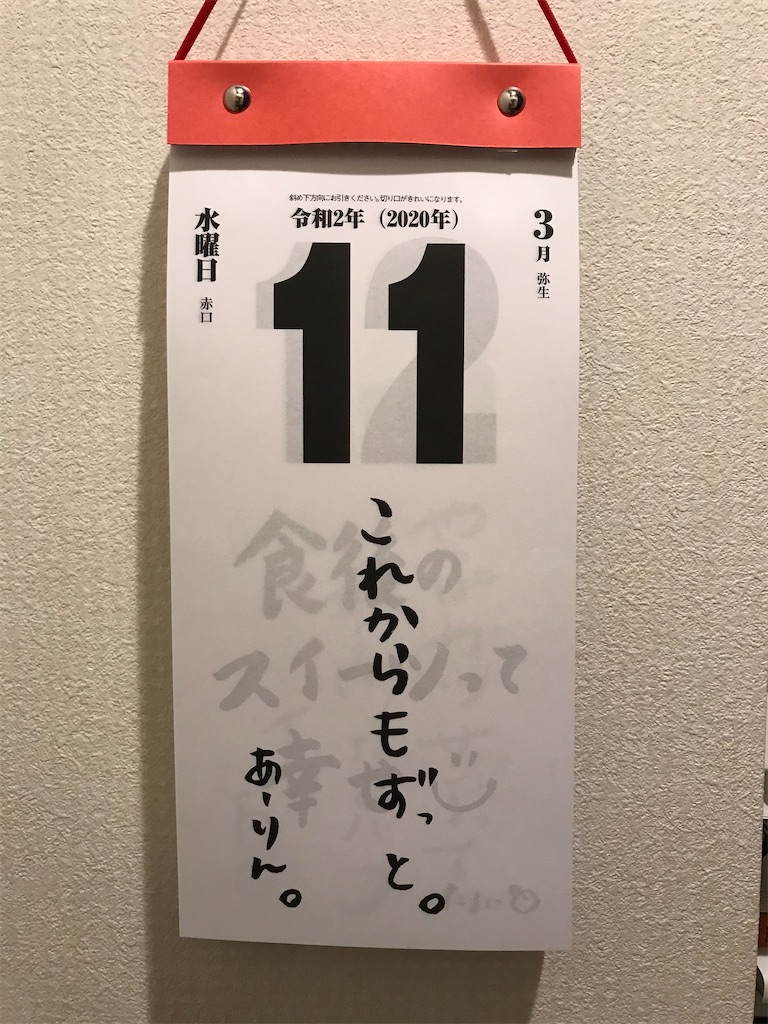 斜め下方向にお引きください。切り口がきれいになります。
令和2年（2020年）
3月 弥生
水曜日 赤口
11
これからもずっと。
あーりん。
12
食後の
スイーツって
幸